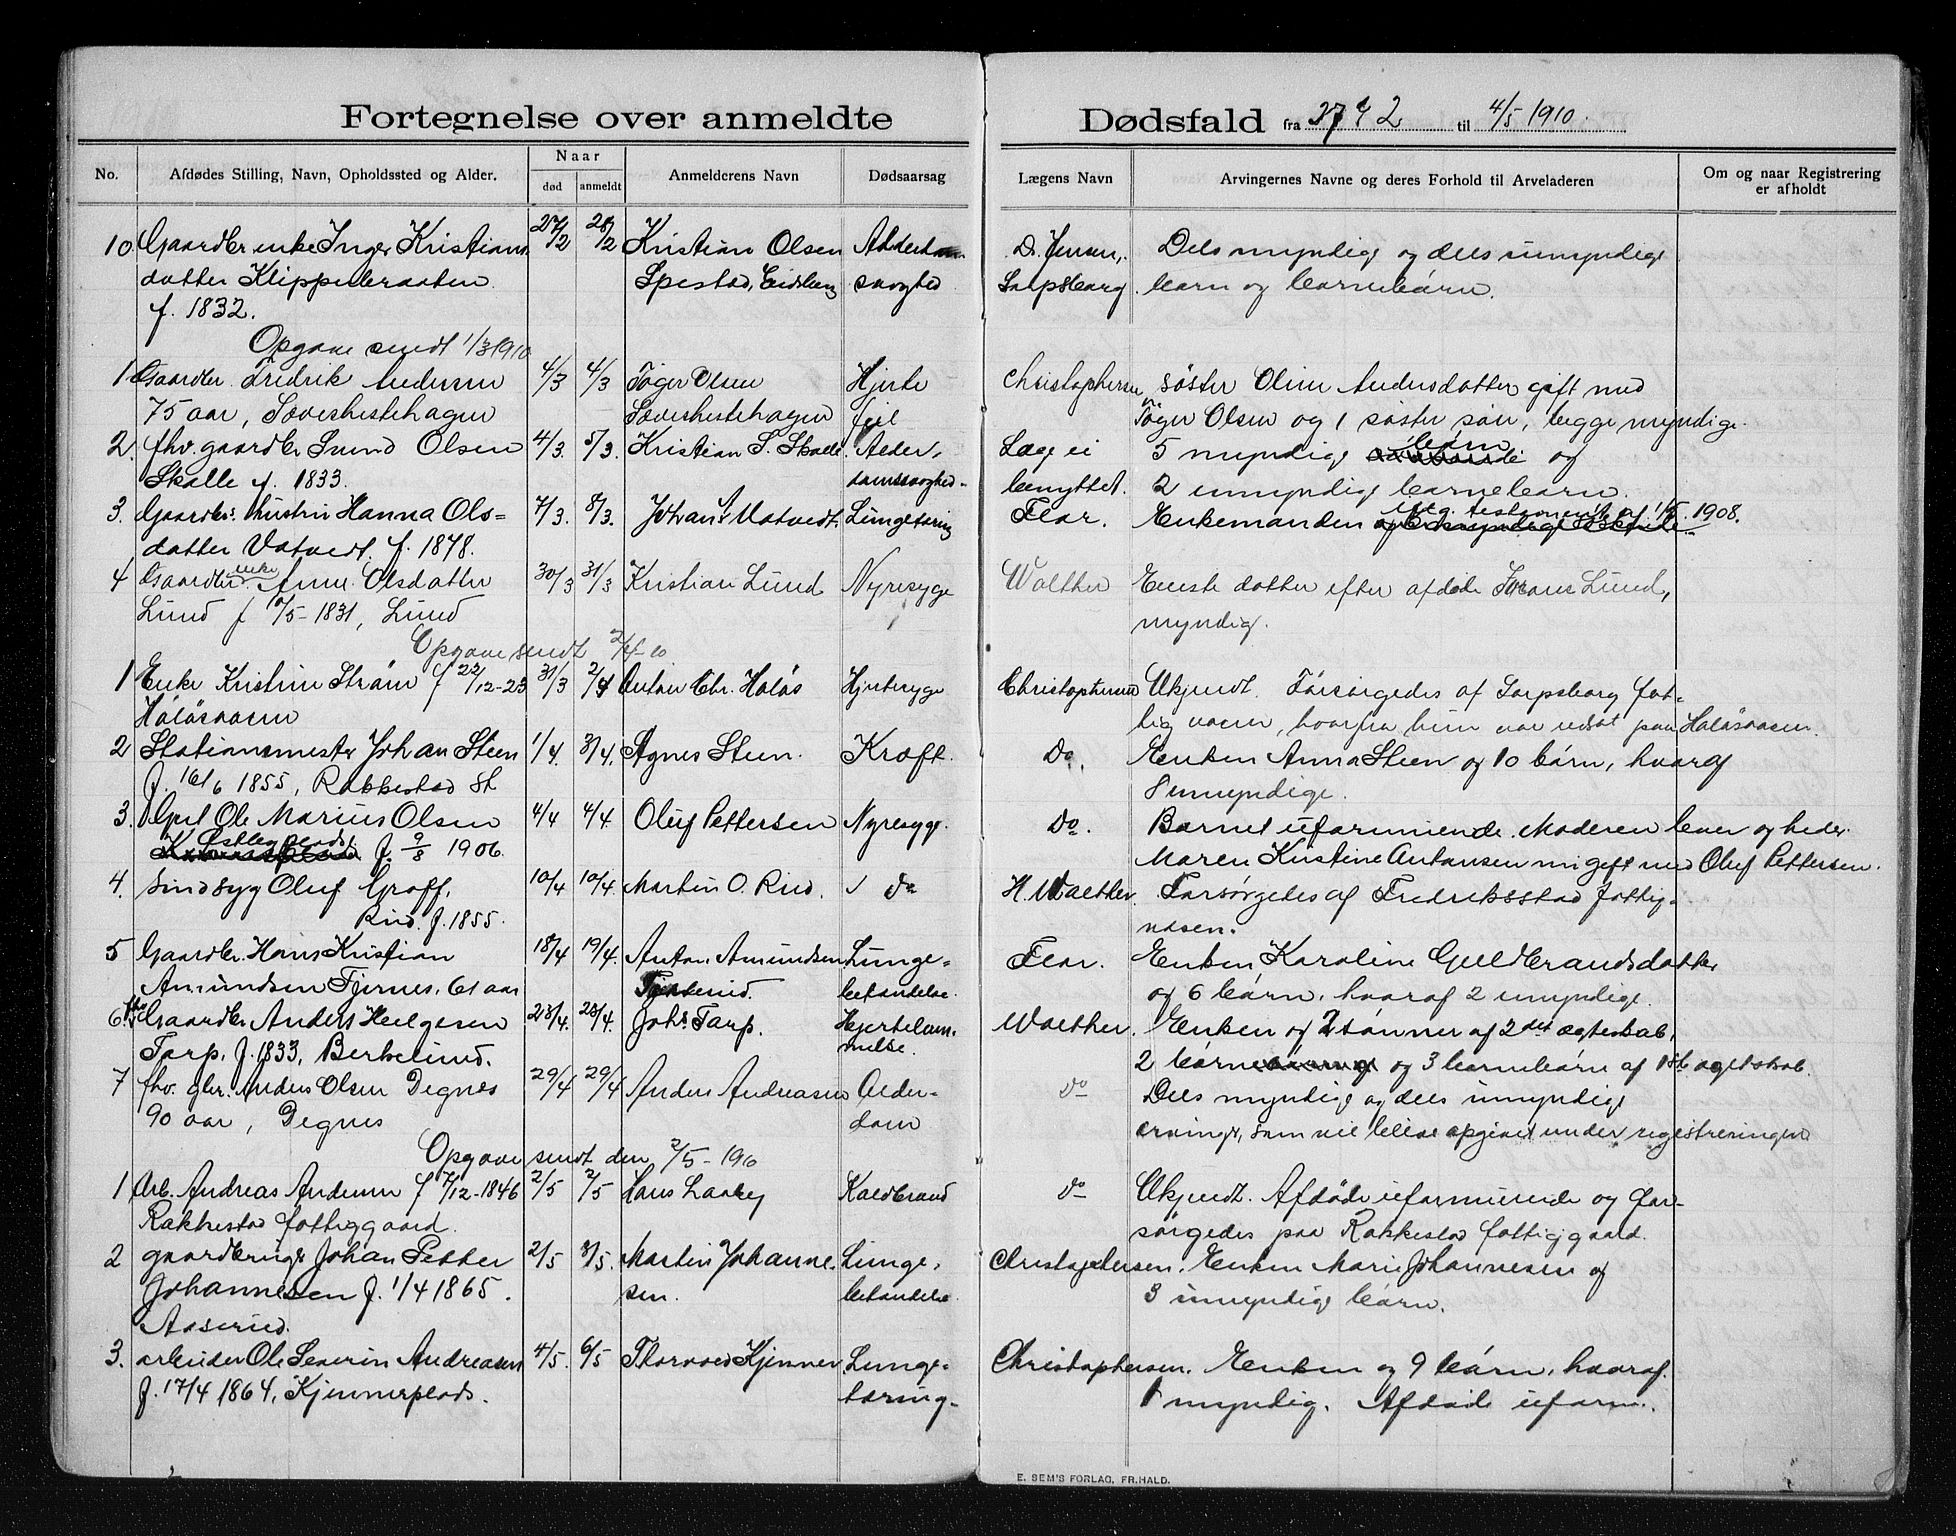 Fortegnelse over anmeldte Dødsfald fra 27/2 til 4/5 1910.
No. Afdødes Stilling, Navn, Opholdssted og Alder. Naar død anmeldt Anmelderens Navn Dødsaarsag Lægens Navn Arvingernes Navne og deres Forhold til Arveladeren Om og naar Registrering er afholdt
10. Gaardbr. enke Inger Kristians- 27/2 28/2 Kristian Olsen Alderdom- Dr. Jensen, Dels myndige og dels umyndige
datter Klippenbraaten Spestad, Eidsberg svaghed Sarpsborg børn og børnebørn.
f. 1832.
Opgave sendt 1/3 1910
1 Gaardbr. Fredrik Andersen 4/3 4/3 Tøger Olsen Hjerte Christophersen søster Oline Andersdatter gift med
75 aar, Søverhestehagen Søverhestehagen feil Tøger Olsen og 1 søster søn, begge myndige.
2. fhv. gaardbr Svend Olsen 4/3. 5/3. Kristian S. Skalle. Alder- Læge ei 5 myndige børn og
Skalle f. 1833. domssvaghed- benyttet. 2 umyndige børnebørn.
3. Gaardbr. hustru Hanna Ols- 7/3. 8/3. Johan A. Vatvedt. Lungetæring Flor. Enkemanden iflg. testamente af 1/5. 1908.
datter Vatvedt. f. 1878.
4 Gaardbr. enke Anne Olsdatter 30/3 31/3 Kristian Lund Nyresyge Walther Eneste datter efter afdøde Johans Lund,
Lund f /5-1831, Lund myndig.
Opgave sendt 2/4-10
1 Enke Kristine Strøm f 22/12-23 31/3 2/4 Anton Chr. Haløs Hjertesyge Christophersen Ukjendt. Forsørgedes af Sarpsborg fat-
Haløsaasen tigvæsen, hvorfra hun var udsat paa Haløsaasen.
2 Stationsmester Johan Steen 1/4. 3/4. Agnes Steen. Kræft. Do. Enken Anna Steen og 10 børn, hvoraf
f. 16/6 1855, Rakkestad St 8 umyndige.
3. Gut Ole Marius Olsen 4/4 4/4. Oluf Pettersen Nyresyge. Do. Barnet uformuende. Moderen lever og heder
f. 9/8 1906. Maren Kristine Antonsen nu gift med Oluf Pettersen.
4. Sindsyg Oluf Groff. 10/4 10/4. Martin O. Rud. Do H. Walther. Forsørgedes af Fredriksstad fattig-
Rud. f. 1855. væsen.
5 Gaardbr. Hans Kristian 18/4 19/4. Anton Amundsen Lunge- Flor. Enken Karoline Guldbrandsdatter
Amundsen Fjernes. 61 aar betændelse. og 6 børn, hvoraf 2 umyndige.
6. Gaardbr Anders Helgesen 23/4. 28/4. Johs Torp. Hjertelam- Walther. Enken og 2 sønner af 2det ægteskab,
Torp. f. 1833, Berkelund. melse. 2 børn og 3 børnebørn af 1ste ægteskab.
7 fhv. gbr. Anders Olsen Degnes 29/4 29/4 Anders Andreasen Alder- do Dels myndige og dels umyndige
90 aar, Degnes dom arvinge, som vil blive opgivet under registreringen
Opgave sendt den 2/5-1910
1 Arb. Andreas Andersen f 7/12-1846 2/5 2/5 Hans Laaby Koldbrand do Ukjendt. Afdøde uformuende og for-
Rakkestad fattiggaard. sørgedes paa Rakkestad fattiggaard.
2 gaardbruger Johan Petter 2/5 3/5. Martin Johanne- Lunge- Christophersen. Enken Marie Johannesen og
Johannesen f. 1/4 1865. sen. betændelse. 3 umyndige børn.
Aaserud.
3. arbeider Ole Severin Andreasen 4/5. 6/5 Thorvald Kjenner Lunge- Christophersen. Enken og 9 børn, hvoraf
f. 17/4 1864. Kjennerplads. tæring- 1 myndig. Afdøde uform..
E. SEM'S FORLAG, FR.HALD.